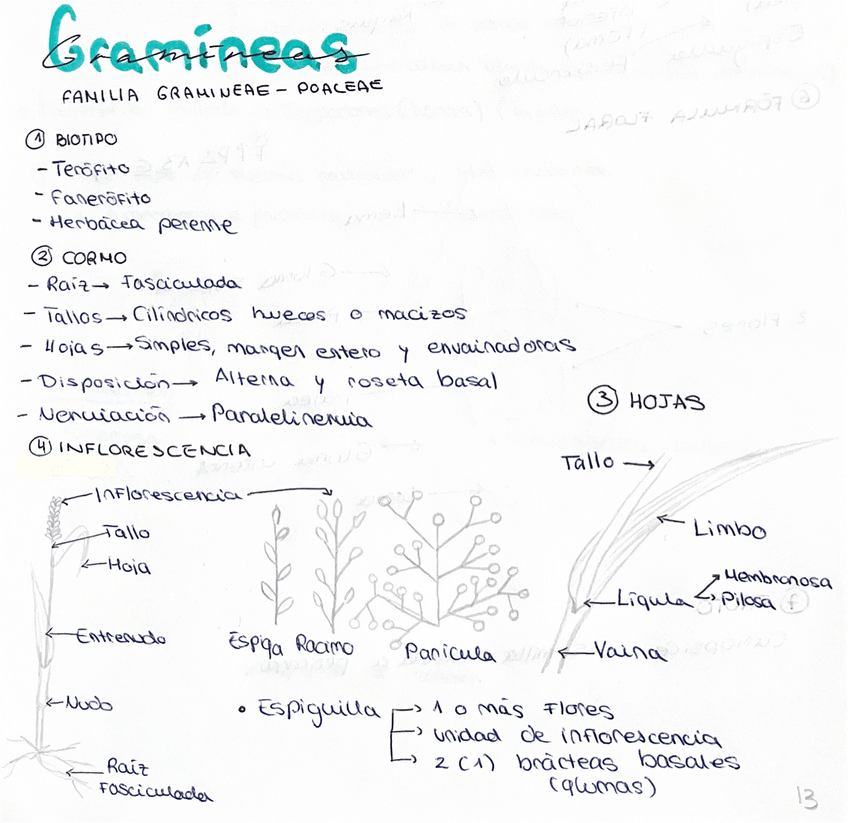 Gramíneas
FAMILIA GRAMINEAE - POACEAE
① BIOTIPO
- Terófito
- Fanerófito
- Herbácea perenne
② CORMO
- Raíz → Fasciculada
- Tallos → Cilíndricos huecos o macizos
- Hojas → Simples, margen entero y envainadoras
- Disposición → Alterna y roseta basal
- Nerviación → Paralelinervia
③ HOJAS
Tallo →
← Limbo
← Lígula
Membranosa
Pilosa
← Vaina
④ INFLORESCENCIA
Inflorescencia
Tallo
← Hoja
← Entrenudo
← Nudo
← Raíz
Fasciculada
Espiga Racimo
Panícula
• Espiguilla → 1 o más flores
→ unidad de inflorescencia
→ 2 (1) brácteas basales
(glumas)
13